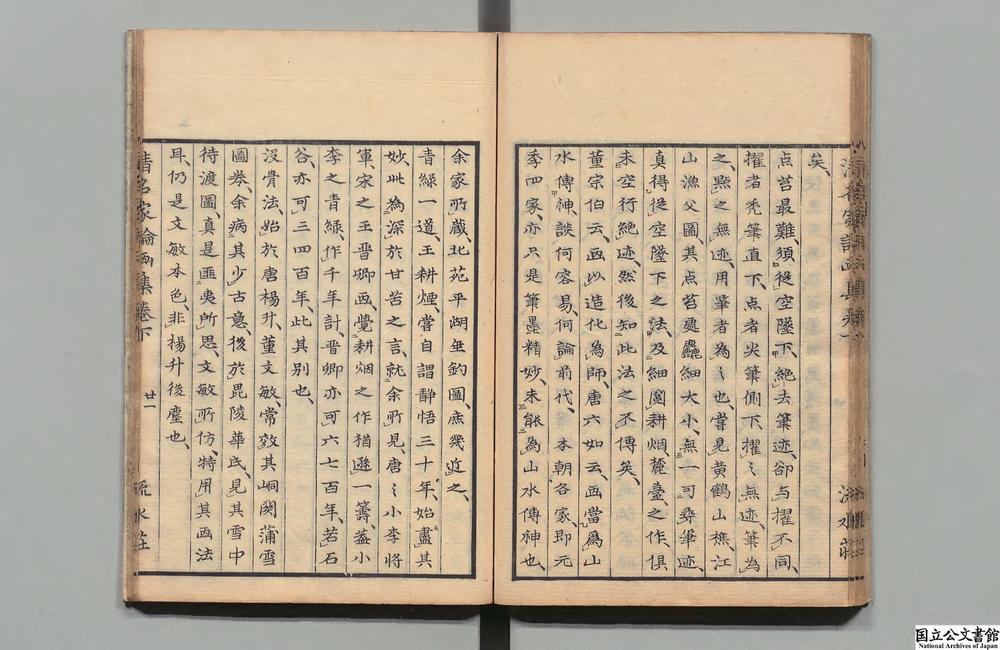 矣、
点苔最難、須従空墜下、絶去筆迹、卻与擢不同、
擢者禿筆直下、点者尖筆側下、擢〻無迹、筆為
之、點之無迹、用筆者為〻也、嘗見黄鶴山樵、江
山漁父圖、其点苔處、麤細大小、無一可尋筆迹、
真得従空墜下之法、及細閲耕烟、麓臺之作、俱
未空行絶迹、然後知此法之不傳矣、
董宗伯云、画以造化為師、唐六如云、画當為山
水傳神、談何容易、何論前代、本朝各家、即元
季四家、亦只是筆墨精妙、未能為山水傳神也、
余家所藏、北苑平湖垂釣圖、庶幾近之、
青緑一道、王耕煙、嘗自謂静悟三十年、始盡其
妙、此為深於甘苦之言、就余所見、唐〻小李将
軍、宋之王晋卿画、覺耕烟之作猶遜一籌、蓋小
李之青緑、作千年計、晋卿亦可六七百年、若石
谷、亦可三四百年、此其别也、
没骨法、始於唐楊升、董文敏、常效其峒関蒲雪
圖、余病其少古意、後於毘陵華氏、見其雪中
待渡圖、真是匪夷所思、文敏所仿、特用其画法
耳、仍是文敏本色、非楊升後塵也、
清名家論画集巻下
廿一
流水荘
国立公文書館
National Archives of Japan